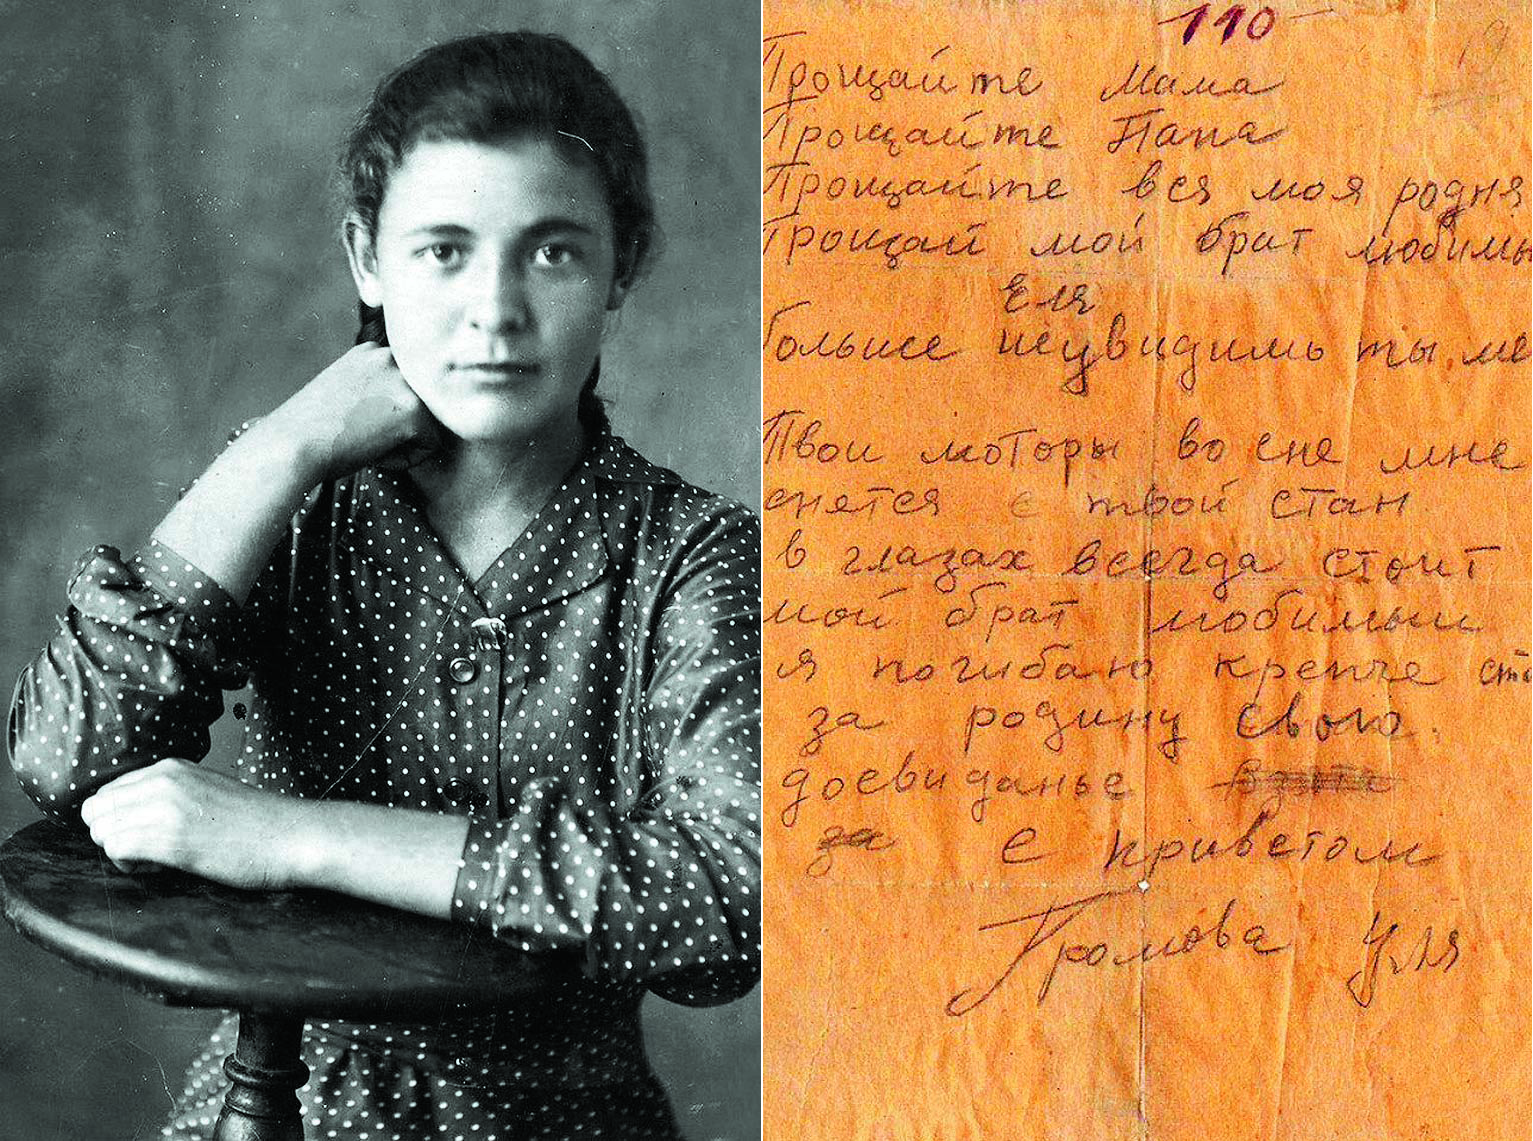 110
19
Прощайте Мама
Прощайте Папа
Прощайте вся моя родня
Прощай мой брат любимы
Еля
больше неувидишь ты ме
Твои моторы во сне мне
снятся с твой стан
в глазах всегда стоит
мой брат любимый
я погибаю крепче ст
за родину свою.
досвиданье
за с приветом
Громова Уля